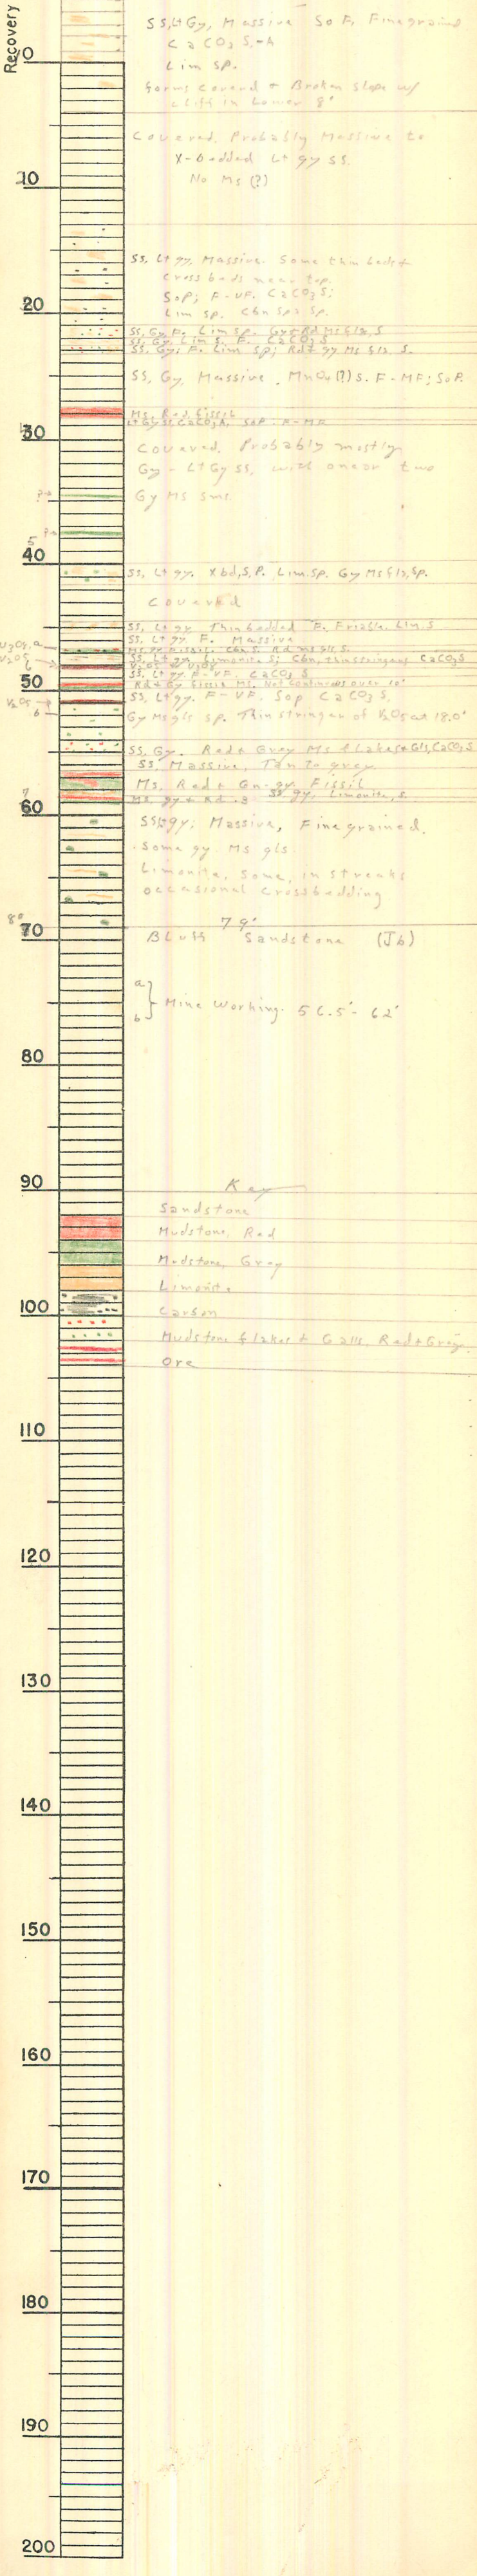 Recovery
SS, Lt Gy, Massive SoF, Fine grained
CaCO3 S,-h
Lim sp.
0
Forms Covered + Broken Slope w/
cliff in Lower 8'
Covered, Probably Massive to
X-bedded Lt gy ss.
No Ms (?)
10
SS, Lt gy, Massive. Some thin beds +
cross beds near top.
SoP; F-VF. CaCO3 S;
Lim sp. Cbn Sp.
20
SS, Gy F. Lim Sp. Gy + Rd Ms gls. S
SS, Gy Lim S. F. CaCO3 S
SS, Gy; F. Lim Sp; Rd + gy Ms gls. S.
SS, Gy, Massive. MnOx(?) S. F-MF; SoP.
Ms, Red, fissil
Lt Gy SS, CaCO3 h, SoP. F-MF
30
Covered. Probably mostly
Gy - Lt Gy ss, with one or two
?→ Gy Ms sms.
5 ?→
40
SS, Lt gy. Xbd, S, P. Lim. Sp. Gy Ms gls, Sp.
Covered
SS, Lt gy Thin bedded F. Friable, Lim. S
SS, Lt gy F. Massive
U3O8, a
Ms, gy Fissil. Cbn S. Rd ms gls S.
V2O5
SS, Lt gy, Limonite S; Cbn, Thin stringers CaCO3 S
V2O5 + U3O8
6
SS, Lt gy F-VF. CaCO3 S
Rd + Gy fissil Ms. Not Continuous over 10'
50
V2O5
SS, Lt gy. F-VF. SoP CaCO3 S.
b
Gy Ms gls sp. Thin stringer of V2O5 at 18.0'
SS, Gy. Red + Grey Ms flakes + Gls, CaCO3 S
SS, Massive, Tan to grey
Ms. Red + Gn-gy Fissil
7
SS gy, Limonite, S.
Ms gy + Rd
60
SS Lt gy; Massive, Fine grained.
Some gy Ms gls
Limonite, Some, in streaks
occasional crossbedding
8
79'
70
Bluff Sandstone (Jb)
a
Mine Working. 56.5'- 62'
b
80
90
Key
Sandstone
Mudstone, Red
Mudstone, Grey
Limonite
100
Carbon
Mudstone flakes + Galls, Red + Grey
Ore
110
120
130
140
150
160
170
180
190
200